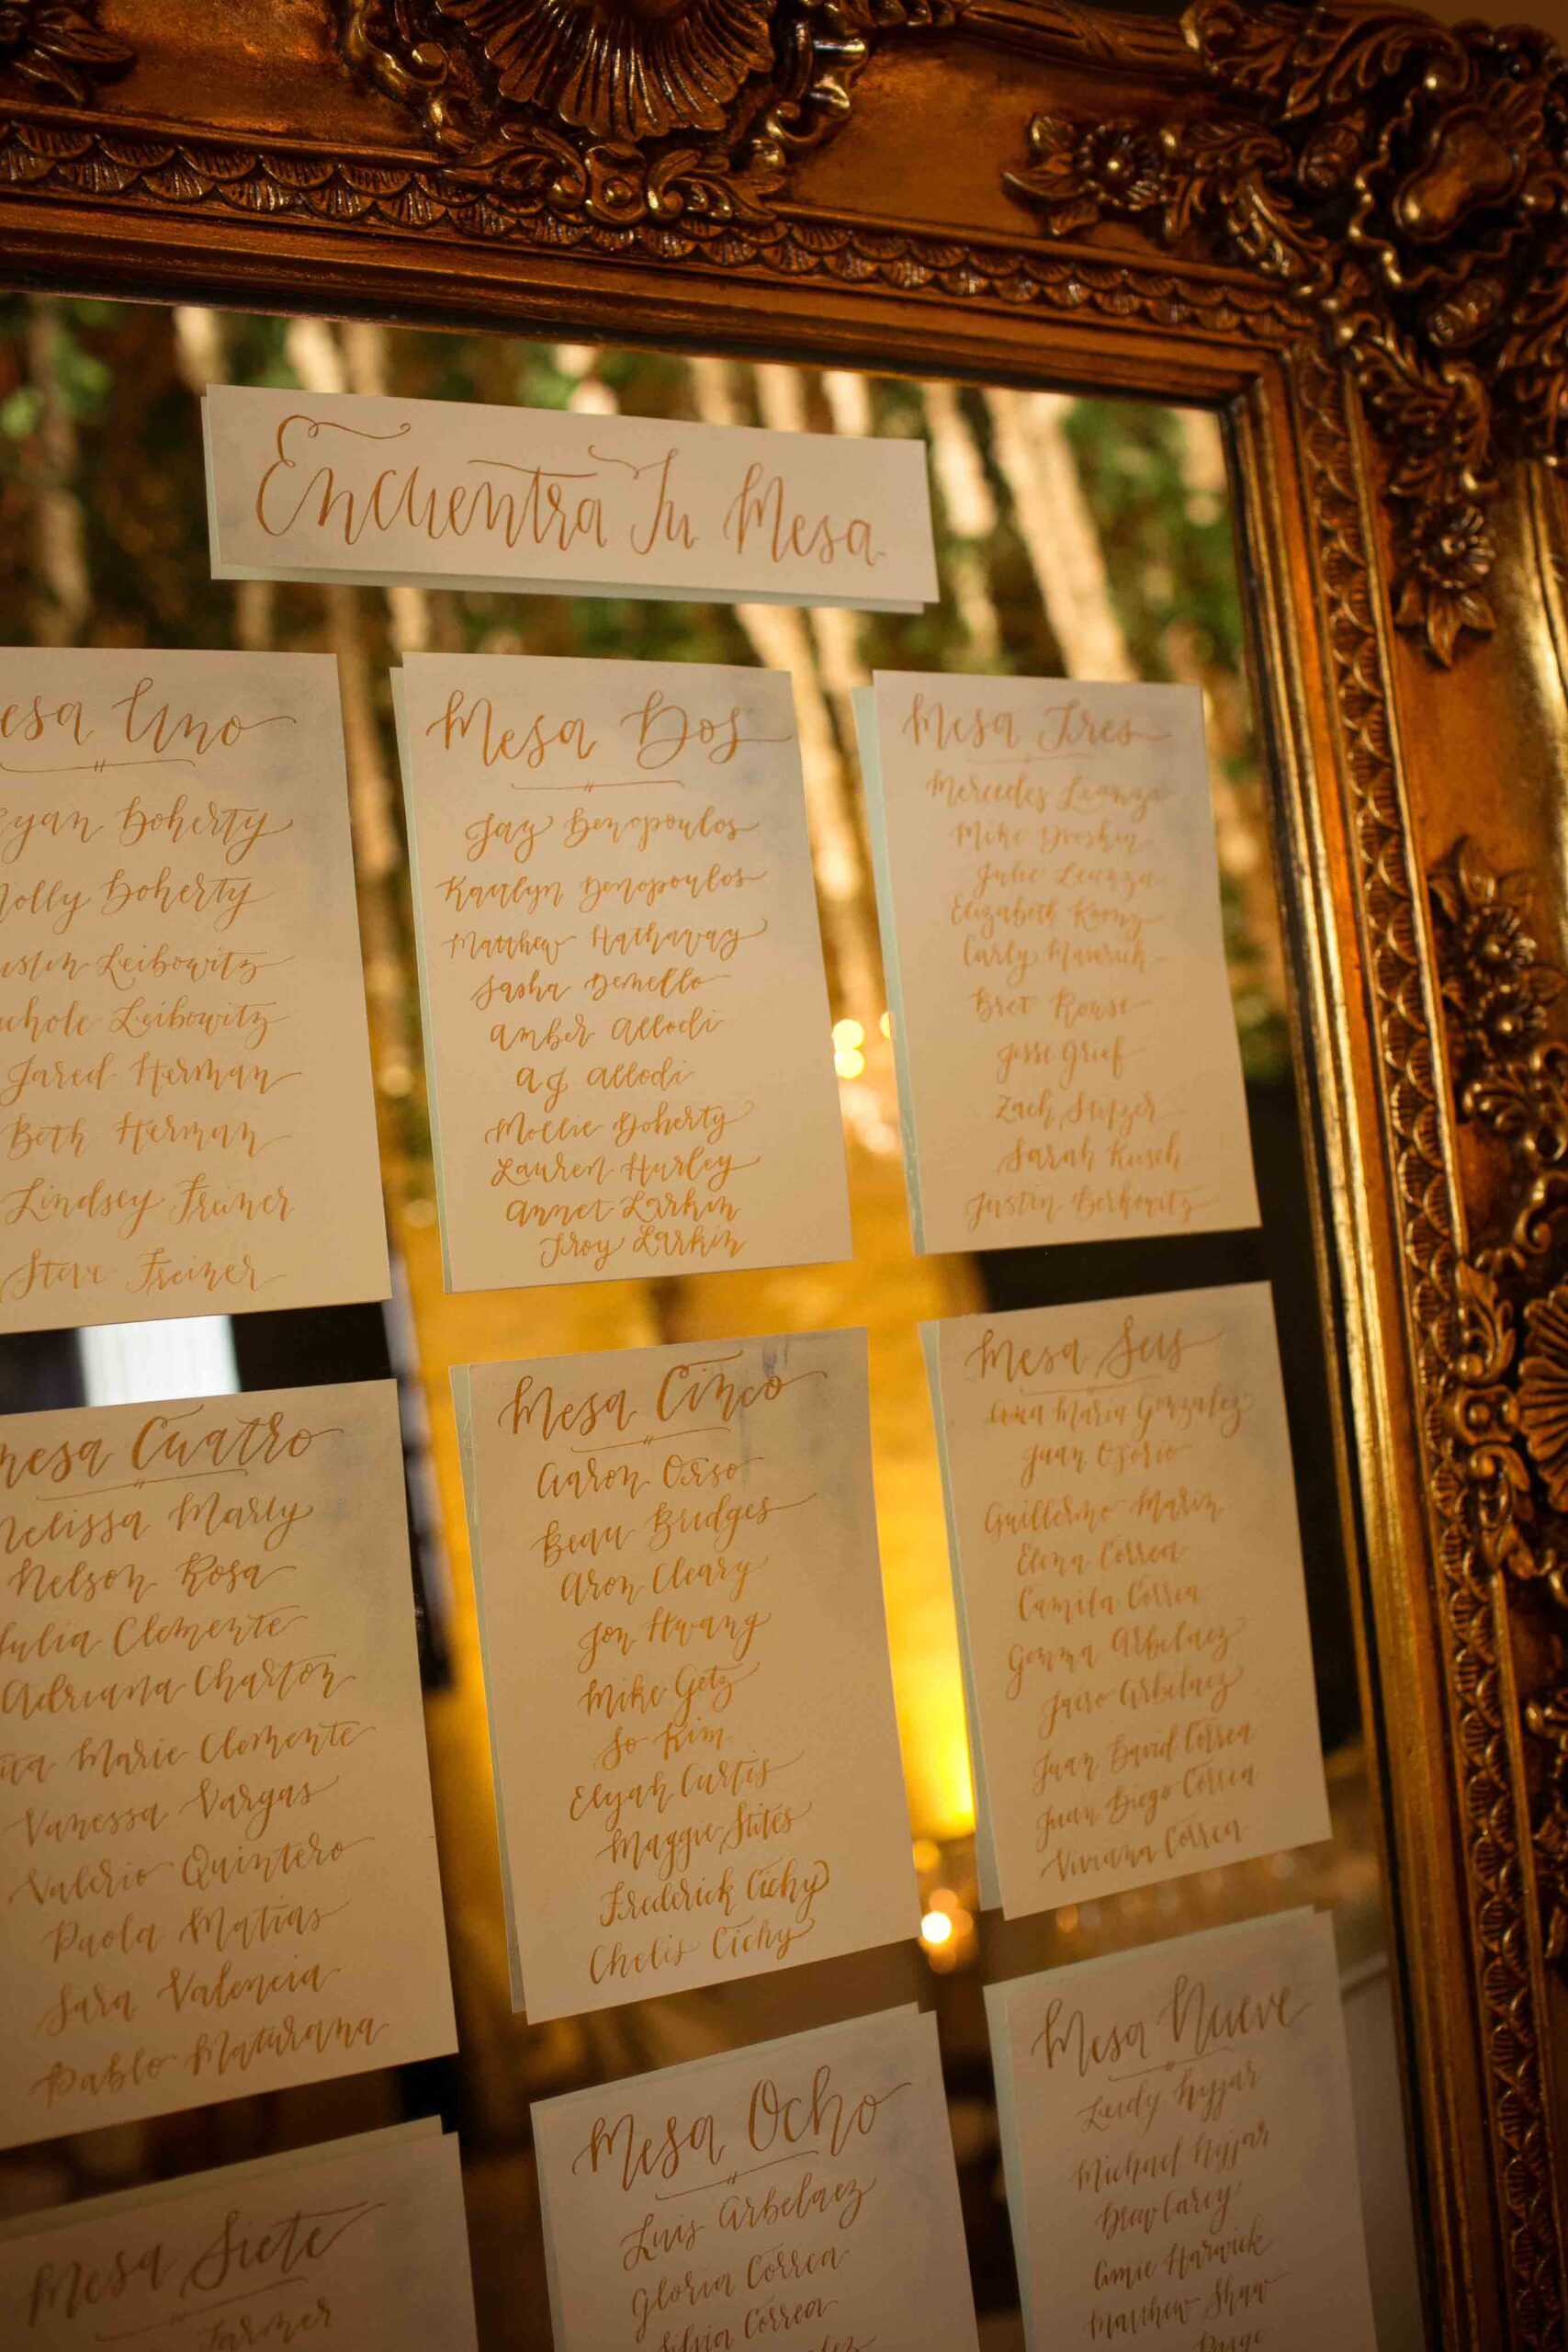 Encuentra Tu Mesa
esa Uno
yan Doherty
olly Doherty
ustin Leibowitz
ichole Leibowitz
Jared Herman
Beth Herman
Lindsey Freiner
Steve Freiner
Mesa Dos
Jay Denopoulos
Kaitlyn Denopoulos
Matthew Hathaway
Sasha Demello
Amber Allodi
AJ Allodi
Mollie Doherty
Lauren Hurley
Annet Larkin
Troy Larkin
Mesa Tres
Mercedes Leanza
Mike Droskin
Julie Leanza
Elizabeth Koonz
Carly Maverick
Bret Rouse
Jesse Grief
Zach Stifzer
Sarah Kusch
Justin Berkowitz
mesa Cuatro
Melissa Marly
Nelson Rosa
Julia Clemente
Adriana Charton
Marie Clemente
Vanessa Vargas
Valerio Quintero
Paola Matias
Sara Valencia
Pablo Maturana
Mesa Cinco
Aaron Orso
Beau Bridges
Aron Cleary
Jon Hwang
Mike Getz
So Kim
Elyjah Curtis
Maggie Stites
Frederick Cichy
Chelis Cichy
Mesa Seis
Ana Maria Gonzalez
Juan Osorio
Guillermo Marin
Elena Correa
Camila Correa
Gemma Arbelaez
Jairo Arbelaez
Juan David Correa
Juan Diego Correa
Viviana Correa
Mesa Siete
Farmer
Mesa Ocho
Luis Arbelaez
Gloria Correa
Silvia Correa
dez
Mesa Nueve
Leidy Hyjar
Michael Hyjar
Drew Carey
Amie Harwick
Matthew Shaw
Paige